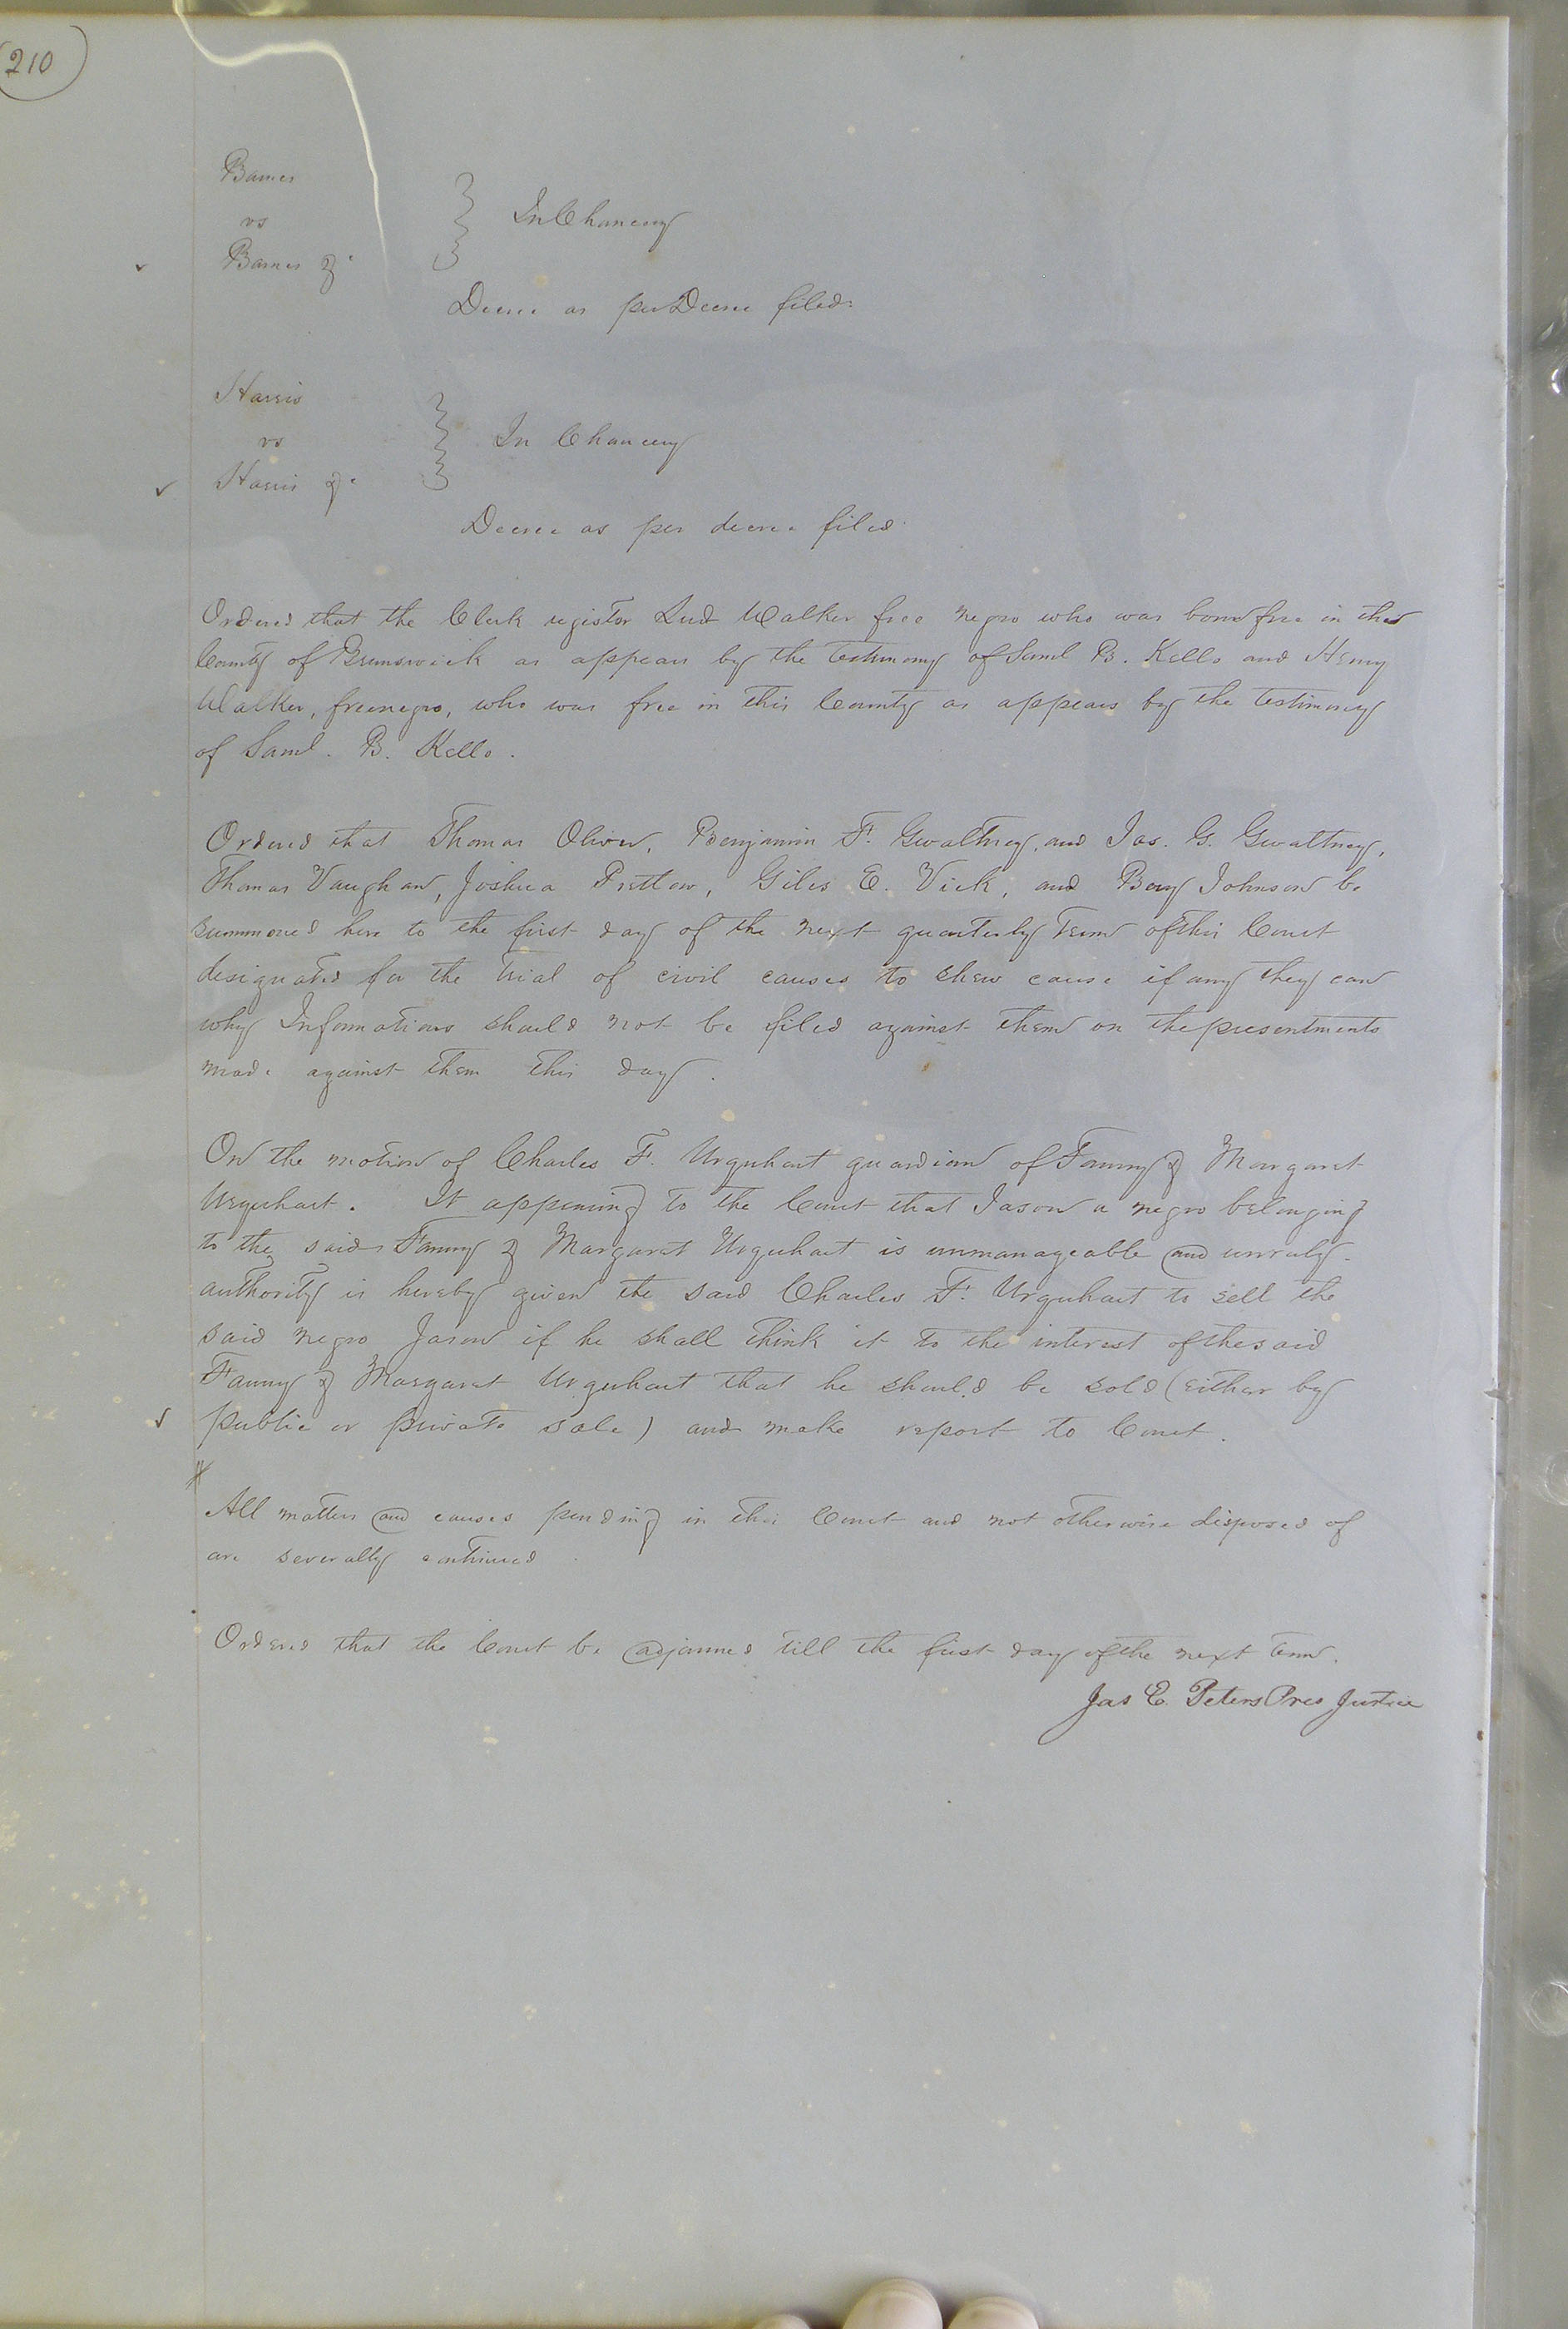 (210)
Barnes
vs
Barnes &c
} In Chancery
Decree as per Decree filed.
Harris
vs
Harris &c
} In Chancery
Decree as per decree filed.
Ordered that the Clerk register Walker free negro who was born free in the
County of Brunswick as appears by the testimony of Saml B. Kello and Henry
Walker, free negro, who was free in this County as appears by the testimony
of Saml. B. Kello.
Ordered that Thomas Oliver, Benjamin F. Gwaltney, and Jas. G. Gwaltney,
Thomas Vaughan, Joshua Pretlow, Giles E. Vick, and Benj Johnson be
summoned here to the first day of the next quarterly Term of this Court
designated for the trial of civil causes to shew cause if any they can
why Informations should not be filed against them on the presentments
made against them this day.
On the motion of Charles F. Urquhart guardian of Fanny & Margaret
Urquhart. It appearing to the Court that Jason a negro belonging
to the said Fanny & Margaret Urquhart is unmanageable and unruly-
authority is hereby given the said Charles F. Urquhart to sell the
said negro Jason if he shall think it to the interest of the said
Fanny & Margaret Urquhart that he should be sold (either by
public or private sale) and make report to Court.
All matters and causes pending in this Court and not otherwise disposed of
are severally continued.
Ordered that the Court be adjourned till the first day of the next term.
Jas E. Peters Pres Justice